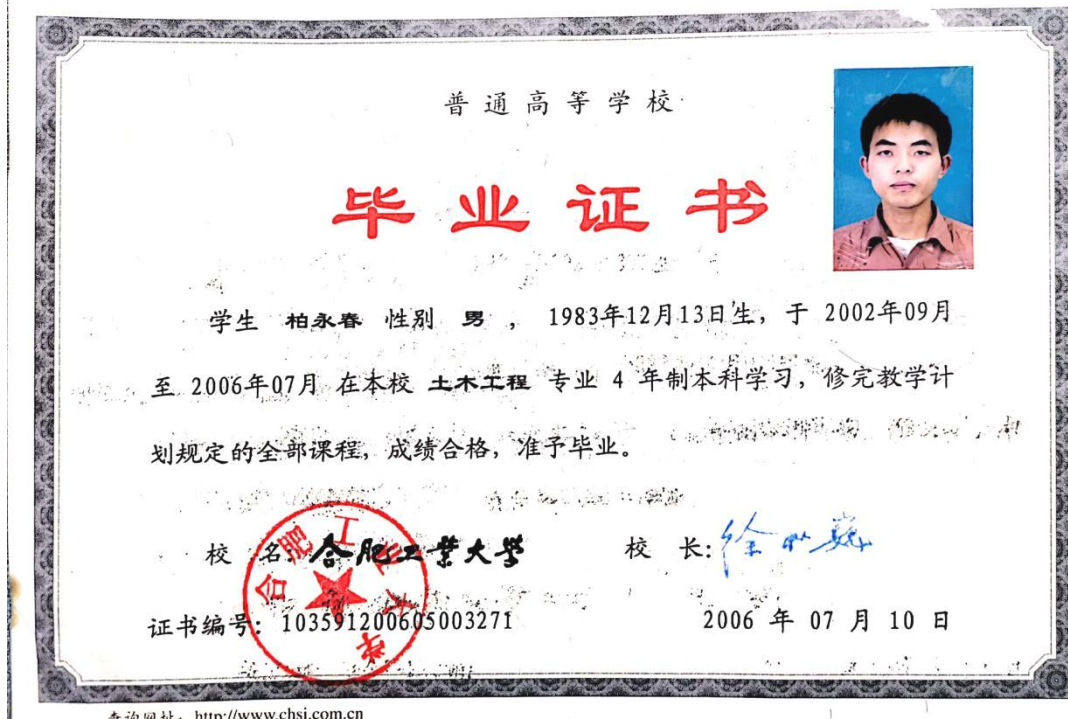 普通高等学校
毕业证书
学生 柏永春 性别 男 , 1983年12月13日生, 于 2002年09月
至 2006年07月 在本校 土木工程 专业 4 年制本科学习, 修完教学计
划规定的全部课程, 成绩合格, 准予毕业。
校 名: 合肥工业大学 校 长:
合肥工业大学
证书编号: 103591200605003271 2006 年 07 月 10 日
查询网址: http://www.chsi.com.cn